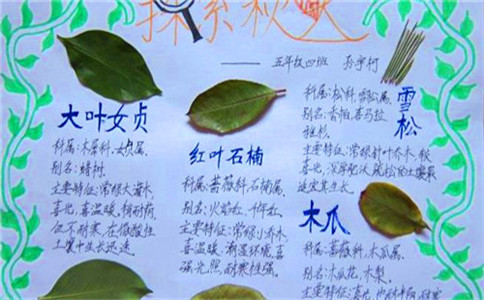 探索秋天
五年级四班 孙宇柯
大叶女贞
科属:木犀科,女贞属,
别名:蜡树.
主要特征:常绿大灌木
喜光,喜温暖,稍耐荫,
但不耐寒.在微酸性
土壤中生长迅速.
红叶石楠
科属:蔷薇科,石楠属.
别名:火焰红,千年红.
主要特征:常绿小乔木
喜温暖,潮湿环境,喜
强光照,耐寒性强.
雪松
科属:松科,雪松属.
别名:香柏,喜马拉
雅杉.
主要特征:常绿针叶乔木,较
喜光,深厚肥沃,疏松的土壤最
适宜其生长.
木瓜
科属:蔷薇科,木瓜属.
别名:木瓜花,木梨.
主要特征:喜光